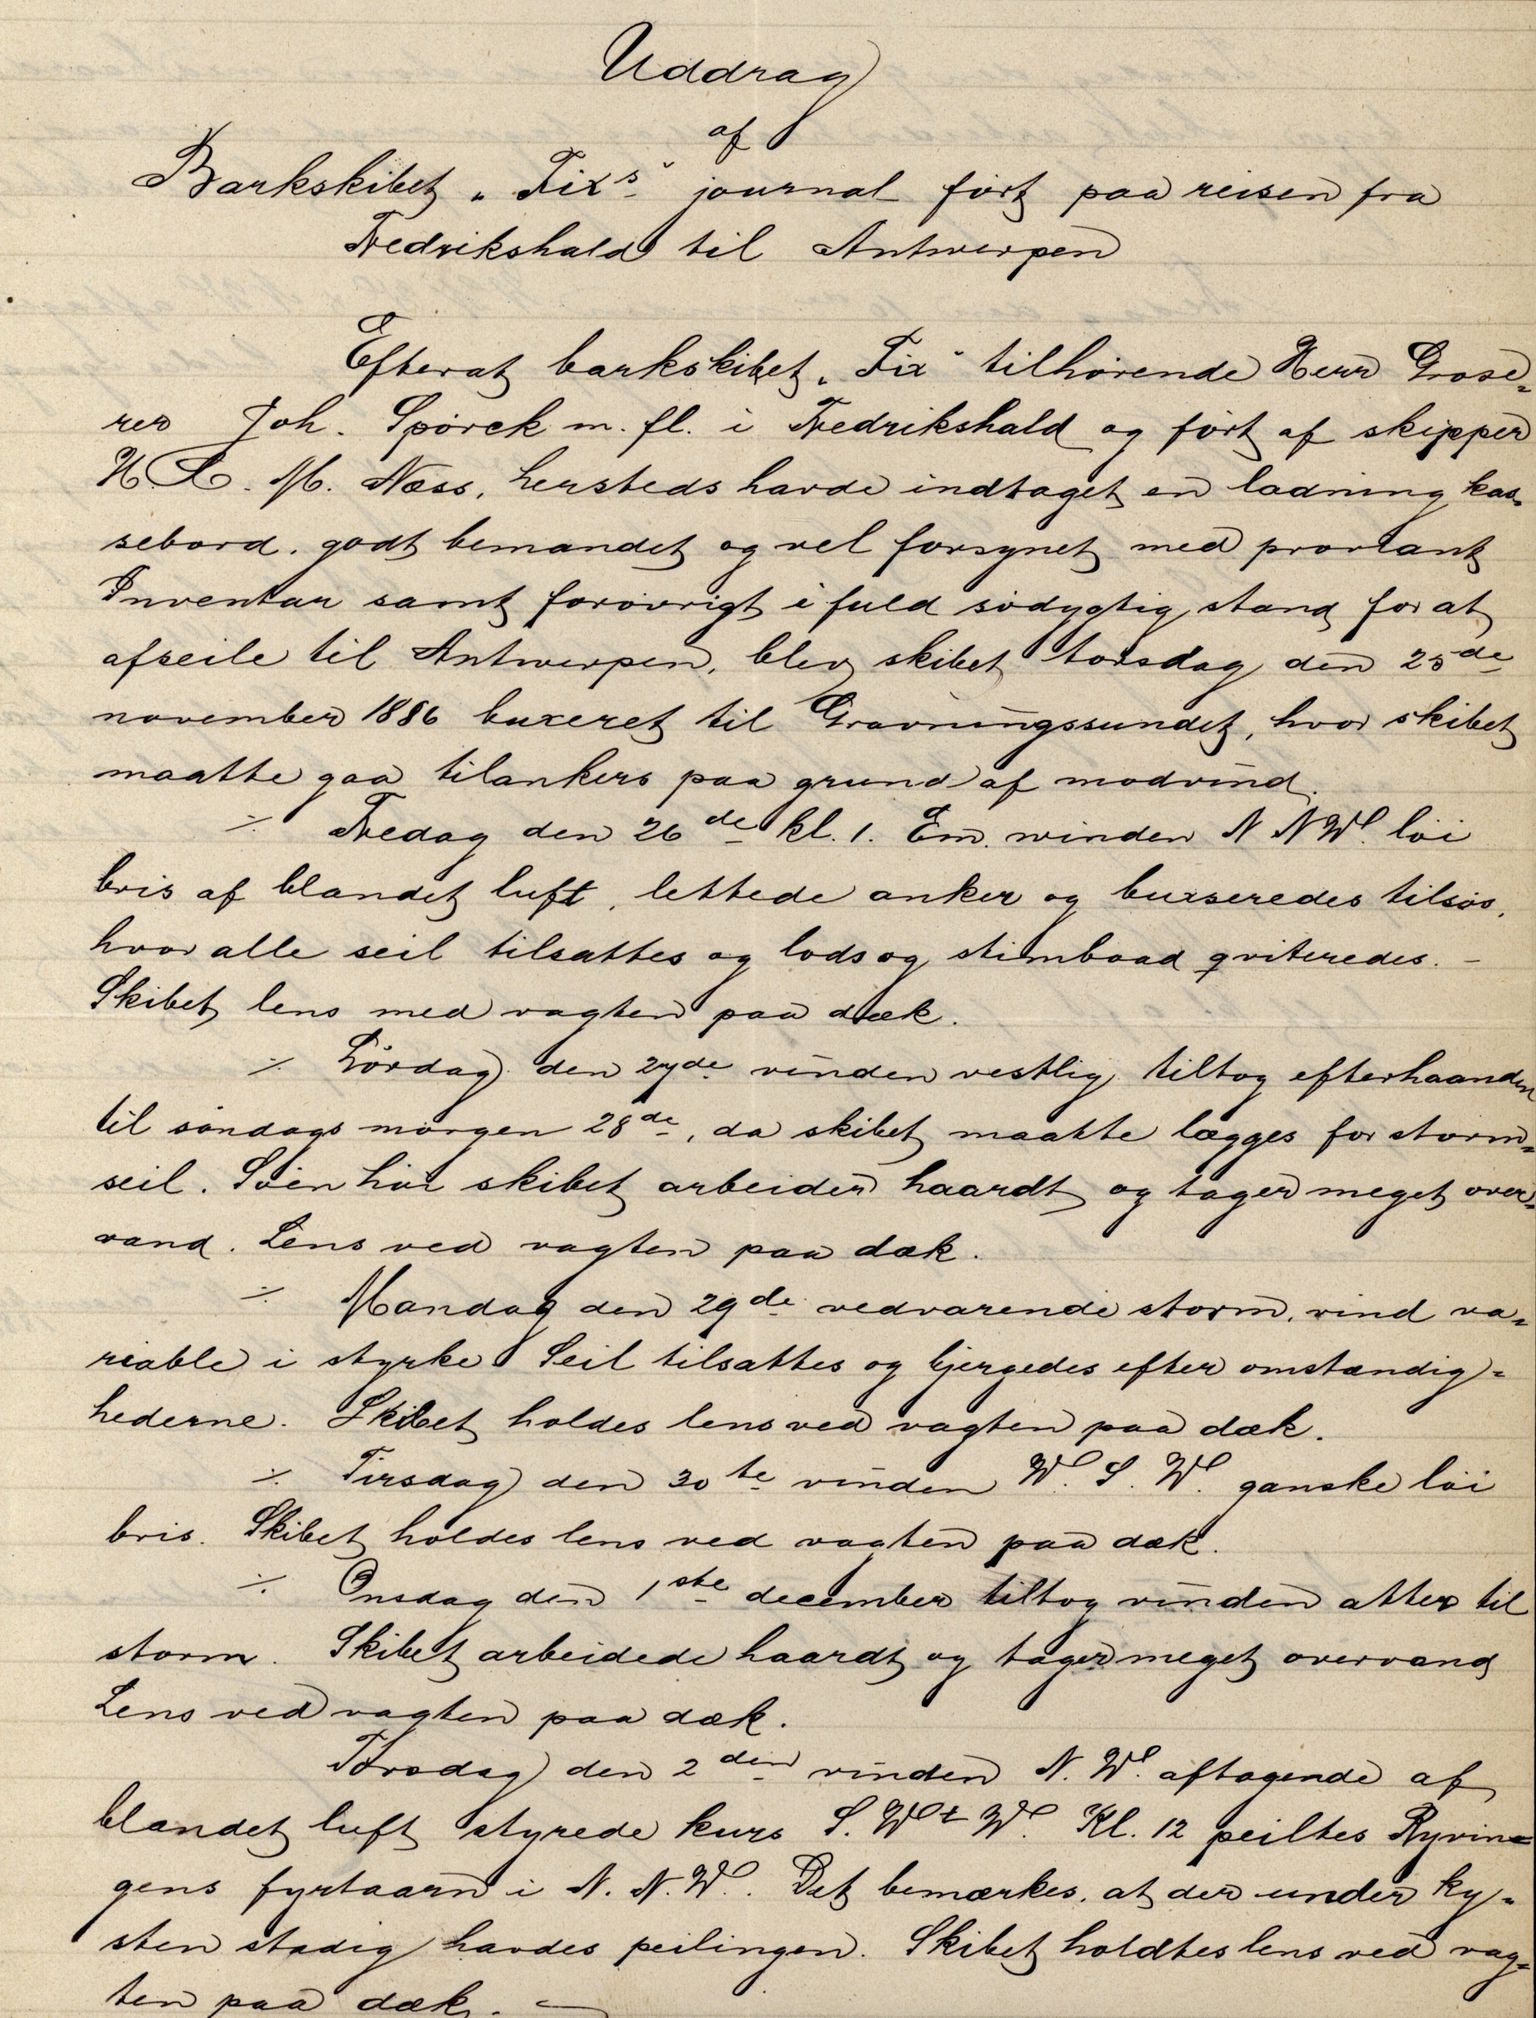 Uddrag
af
Barkskibet „Fixs" journal ført paa reisen fra
Fredrikshald til Antwerpen
Efterat barkskibet „Fix" tilhørende Herr Grose=
rer Joh. Spørck m. fl. i Fredrikshald og ført af skipper
M. Næss, hersteds havde indtaget en ladning kas=
sebord, godt bemandet og vel forsynet med proviant
Inventar samt forøvrigt i fuld sødygtig stand for at
afseile til Antwerpen, blev skibet torsdag den 25de
november 1886 buxeret til Gravningssundet, hvor skibet
maatte gaa tilankers paa grund af modvind.
÷ Fredag den 26de kl. 1. Em. winden N NW. løi
bris af blandet luft, lettede anker og buxseredes tilsøs,
hvor alle seil tilsattes og lods og stimbaad qviteredes. –
Skibet lens med vagten paa dæk.
÷ Lørdag den 27de vinden vestlig tiltog efterhaanden
til søndags morgen 28de, da skibet maatte lægges for storm=
seil. Søen høi skibet arbeider haardt og tager meget over=
vand. Lens ved vagten paa dæk.
÷ Mandag den 29de vedvarende storm, vind va=
riable i styrke Seil tilsattes og bjergedes efter omstændig=
hederne. Skibet holdes lens ved vagten paa dæk.
÷ Tirsdag den 30te vinden W. S. W. ganske løi
bris. Skibet holdes lens ved vagten paa dæk.
÷ Onsdag den 1ste december tiltog vinden atter til
storm. Skibet arbeidede haardt og tager meget overvand
Lens ved vagten paa dæk.
Torsdag den 2den vinden N. W. aftagende af
blandet luft styrede kurs S. Wt W. Kl. 12 peiltes Ryvin=
gens fyrtaarn i N. N. W. Det bemærkes, at der under ky=
sten stadig havdes peilingen. Skibet holdtes lens ved vag=
ten paa dæk. —